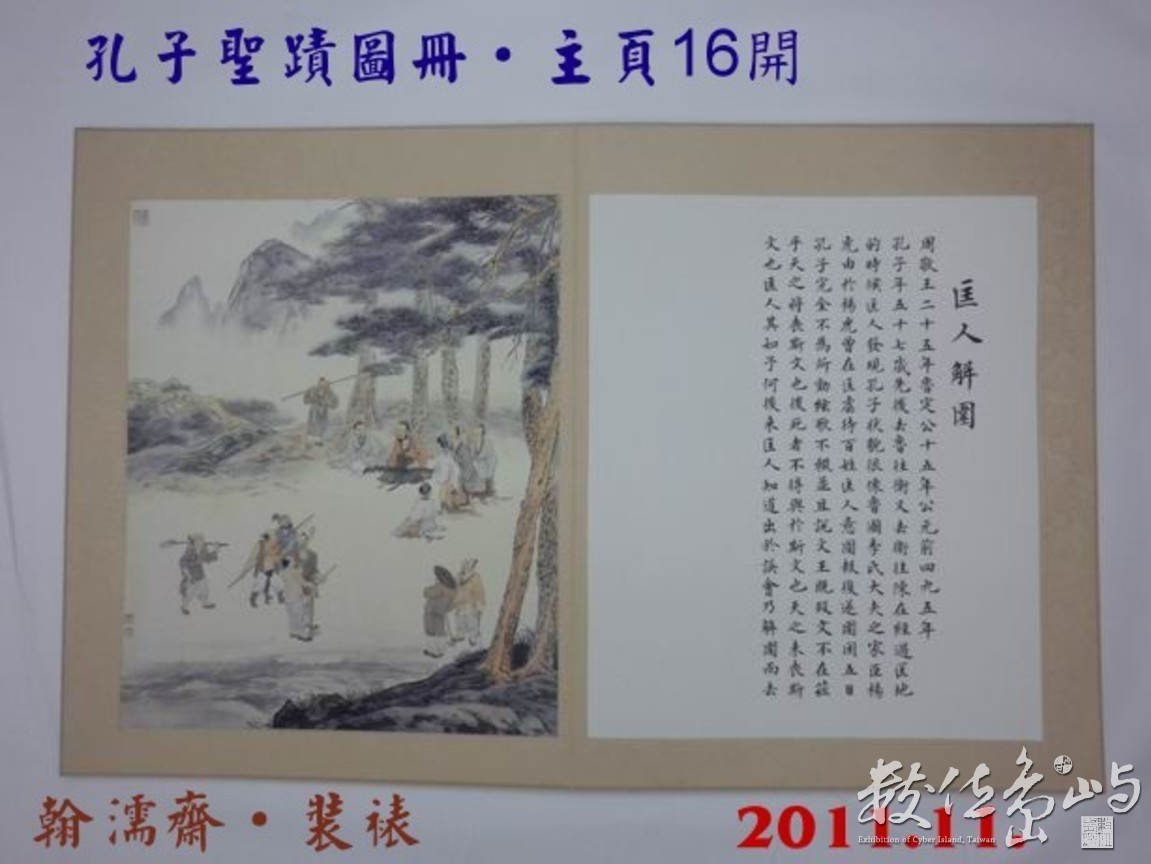 孔子聖蹟圖冊·主頁16開
匡人解圍
周敬王二十五年魯定公十五年公元前四九五年
孔子年五十七歲先後去魯往衛又去衛往陳在經過匡地
的時候匡人發現孔子狀貌很像魯國季氏大夫之家臣楊
虎由於楊虎曾在匡虐待百姓匡人意圖報復遂圍困五日
孔子完全不為所動絃歌不輟並且說文王既歿文不在茲
乎天之將喪斯文也後死者不得與於斯文也天之未喪斯
文也匡人其如予何後來匡人知道出於誤會乃解圍而去
翰濡齋·裝裱
2011.11.
數位島嶼
Exhibition of Cyber Island, Taiwan